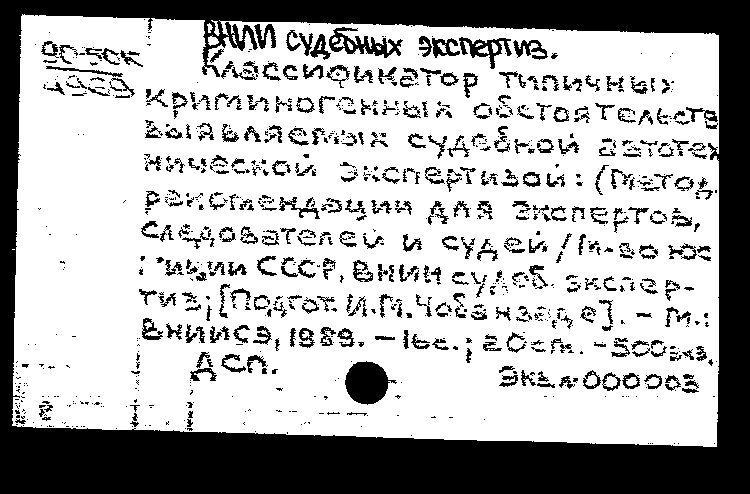 ВНИИ судебных экспертиз.
90-50К
4969
Классификатор типичных
криминогенных обстоятельств
выявляемых судебной автотех
нической экспертизой: (Метод.
рекомендации для экспертов,
следователей и судей / М-во юс
тиции СССР, ВНИИ судеб. экспер-
тиз; [Подгот. И.М. Чобанзаде]. - М.:
ВНИИСЭ, 1989. - 16с.; 20см. - 500экз.
ДСП.
Экз. № 000003